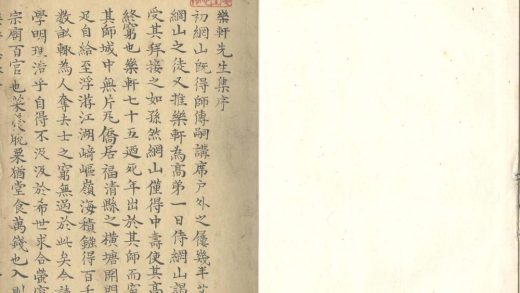 樂軒先生集序
初網山既得師傳嗣講席戶外之屨幾半艾
網山之徒又推樂軒為高弟一日侍網山謁
受其拜接之如孫然網山僅得中壽使其高
終窮也樂軒七十五過死年出於其師而窮
其師城中無片瓦僑居福清縣之橫塘開門
足自給至浮游江湖崎嶇嶺海積鏹得百千
教訟輒為人奪去士之窮無過於此矣今讀
學明理浩乎自得不汲汲於希世求合螢窗
宗廟百官也菜羹脫粟猶堂食萬錢也入則